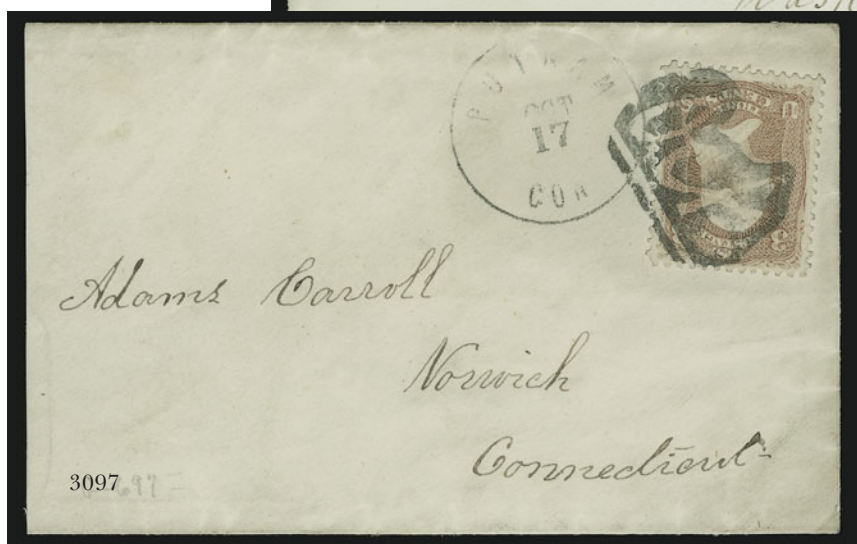 PUTNAM
OCT
17
CON
U
THREE
CENTS
3
Adams Carroll
Norwich
Connecticut
3097